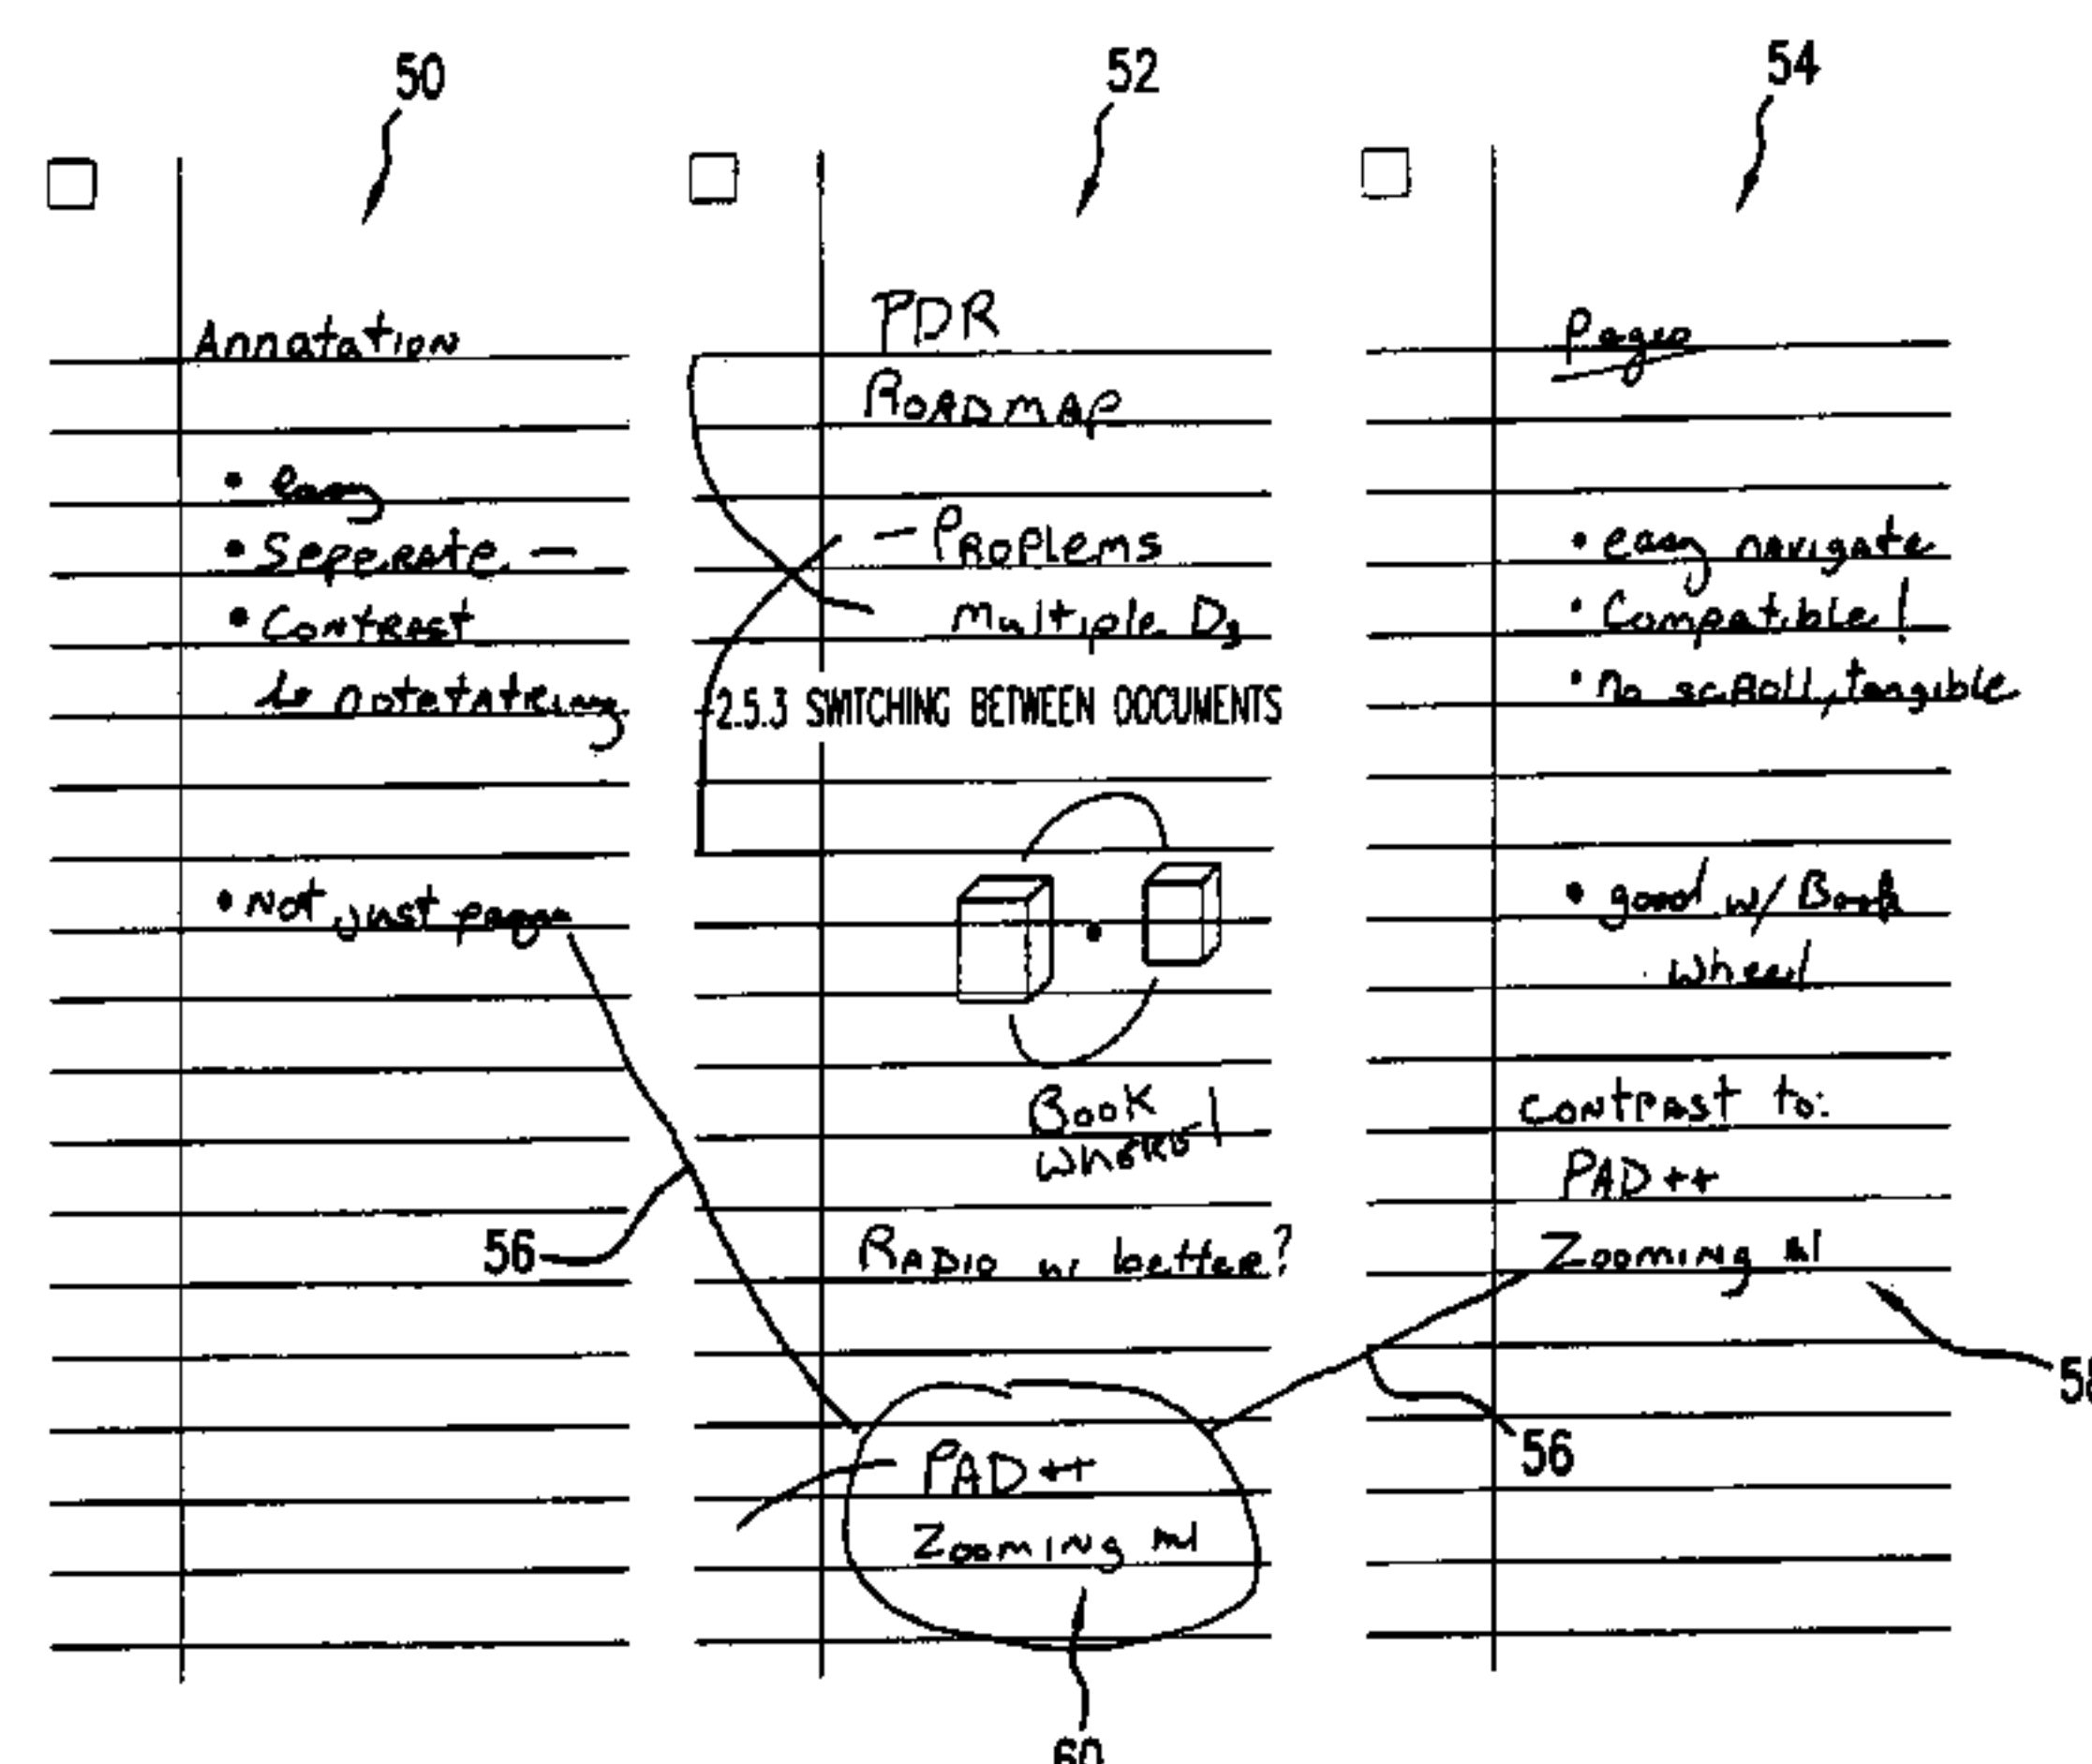 50
52
54
Annatation
• easy
• Seperate —
• Contrast
to notetatking
• Not just pages
56
PDR
ROADMAP
— PROPlems
multiple Ds
2.5.3 SWITCHING BETWEEN DOCUMENTS
Book
Radio w/ better?
PAD++
Zooming
60
Pages
• easy navigate
• Compatible!
• no scroll, tangible
• good w/ Book
wheel
contrast to:
PAD++
Zooming
58
56